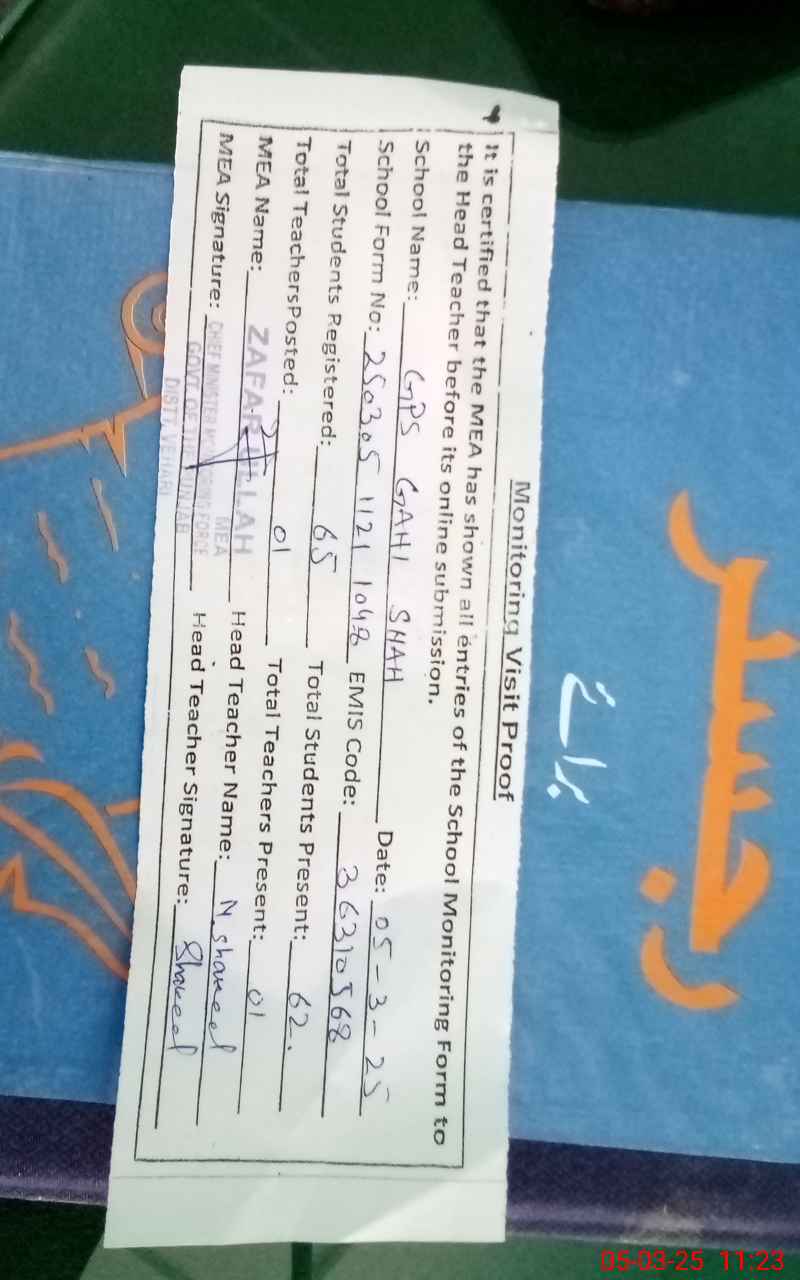 Monitoring Visit Proof
It is certified that the MEA has shown all entries of the School Monitoring Form to
the Head Teacher before its online submission.
School Name: GPS GAHI SHAH Date: 05-3-25
School Form No: 250305 1121 1048 EMIS Code: 36310568
Total Students Registered: 65 Total Students Present: 62.
Total TeachersPosted: 01 Total Teachers Present: 01
MEA Name: ZAFAR ULLAH Head Teacher Name: M Shakeel
MEA
MEA Signature: Head Teacher Signature: Shakeel
CHIEF MINISTER MONITORING FORCE
GOVT OF THE PUNJAB
DISTT VEHARI
رجسٹر
05-03-25 11:23